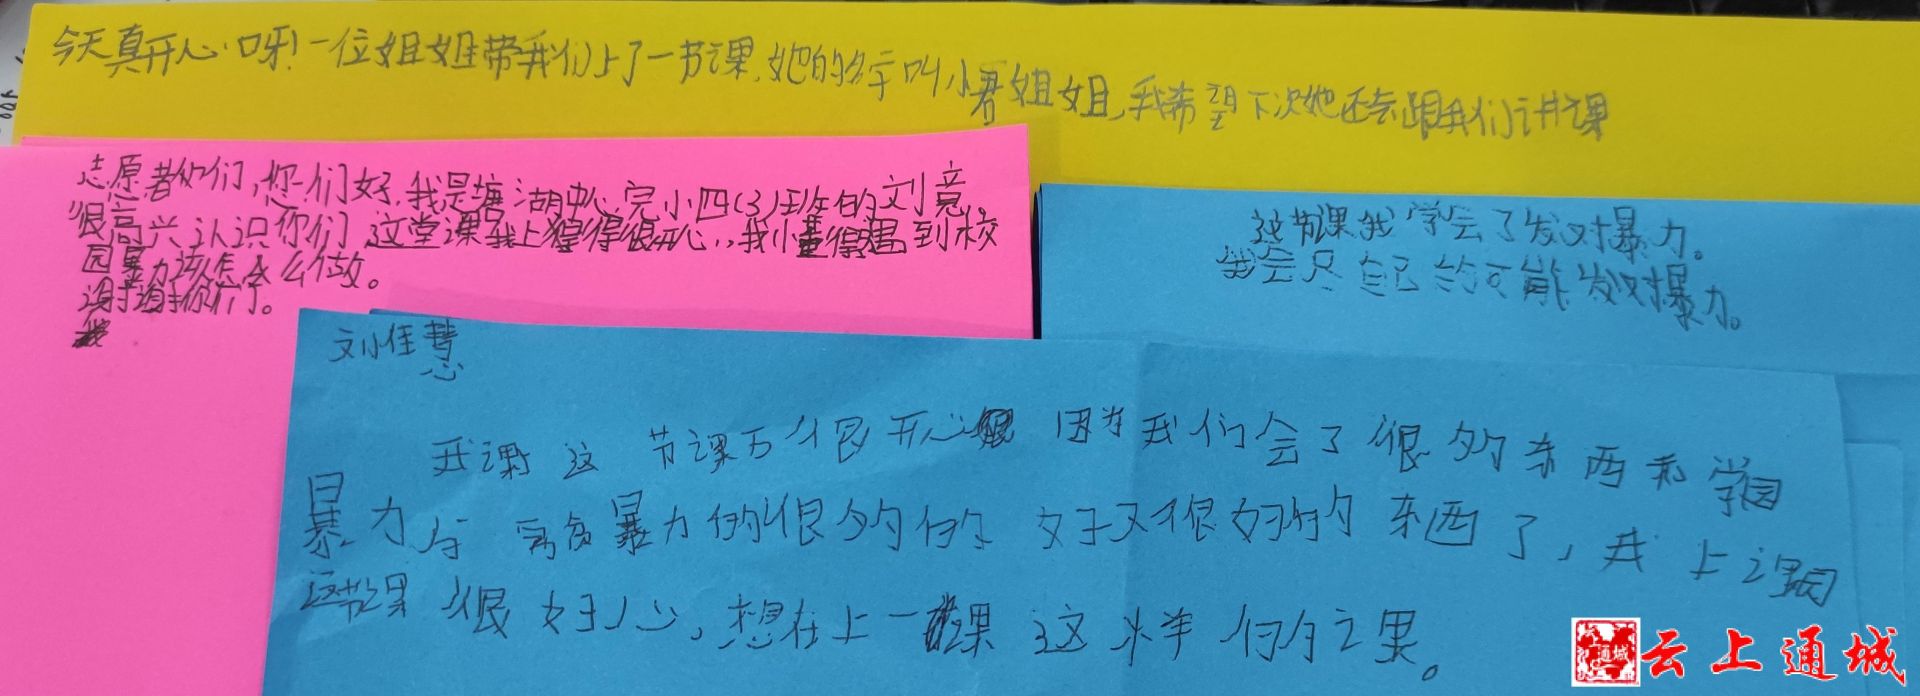 今天真开心呀!一位姐姐带我们上了一节课,她的名字叫小君姐姐,我希望下次她还会跟我们讲课
志愿者你们,您们好,我是塘湖中心完小四(3)班的刘竟
很高兴认识你们,这堂课我上得很开心,我懂得遇到校
园暴力该怎么做。
谢谢你们。
这节课我学会了发对暴力。
我会尽自己的可能发对暴力。
刘佳慧
我 这节课 很开心 因为我们会了很多东西和学园
暴力与 暴力的很多的 好又很好的东西了,我上
这节课很好心,想在上一 课这样的课。
云上通城
通城